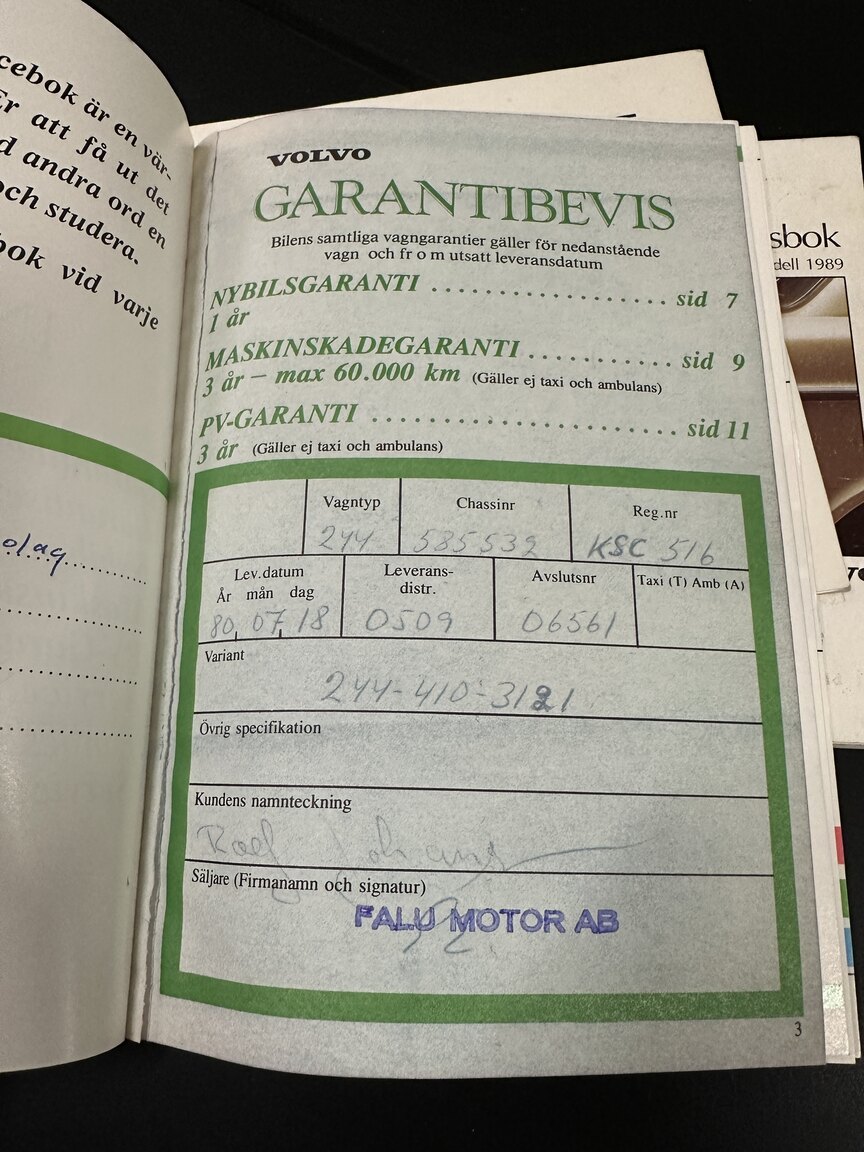 cebok är en vär-
Er att få ut det
d andra ord en
och studera.
bok vid varje
olag
VOLVO
GARANTIBEVIS
Bilens samtliga vagngarantier gäller för nedanstående
vagn och fr o m utsatt leveransdatum
NYBILSGARANTI .................... sid 7
1 år
MASKINSKADEGARANTI ............ sid 9
3 år – max 60.000 km (Gäller ej taxi och ambulans)
PV-GARANTI ......................... sid 11
3 år (Gäller ej taxi och ambulans)
Vagntyp Chassinr Reg.nr
244 585532 KSC 516
Lev.datum Leverans- Avslutsnr Taxi (T) Amb (A)
År mån dag distr.
80 07 18 0509 06561
Variant
244-410-3121
Övrig specifikation
Kundens namnteckning
Säljare (Firmanamn och signatur)
FALU MOTOR AB
3
sbok
dell 1989